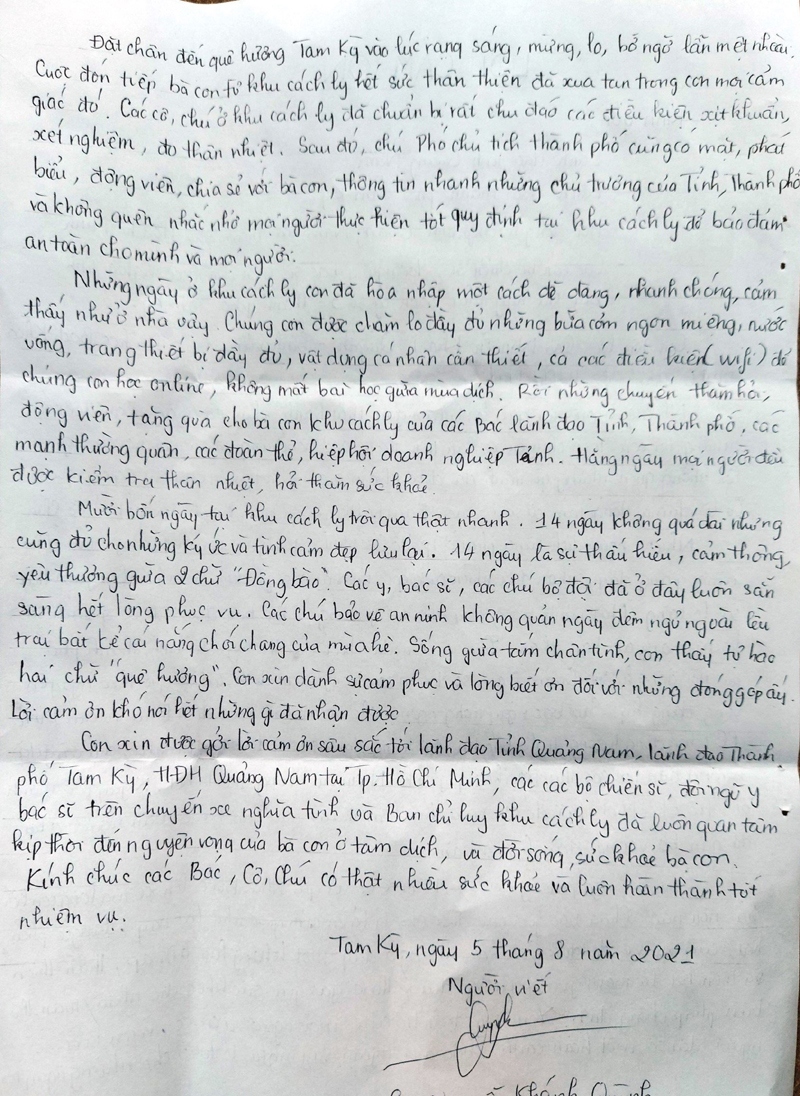 Đặt chân đến quê hương Tam Kỳ vào lúc rạng sáng, mừng, lo, bỡ ngỡ lẫn mệt nhoài.
Cuộc đón tiếp bà con từ khu cách ly hết sức thân thiện đã xua tan trong con mọi cảm
giác đó. Các cô, chú ở khu cách ly đã chuẩn bị rất chu đáo các điều kiện xịt khuẩn,
xét nghiệm, đo thân nhiệt. Sau đó, chú Phó chủ tịch thành phố cũng có mặt, phát
biểu, động viên, chia sẻ với bà con, thông tin nhanh những chủ trương của Tỉnh, Thành phố
và không quên nhắc nhở mọi người thực hiện tốt quy định tại khu cách ly để bảo đảm
an toàn cho mình và mọi người.
Những ngày ở khu cách ly con đã hòa nhập một cách dễ dàng, nhanh chóng, cảm
thấy như ở nhà vậy. Chúng con được chăm lo đầy đủ những bữa cơm ngon miệng, nước
uống, trang thiết bị đầy đủ, vật dụng cá nhân cần thiết, cả các điều kiện (wifi) để
chúng con học online, không mất bài học giữa mùa dịch. Rồi những chuyến thăm hỏi,
động viên, tặng quà cho bà con khu cách ly của các Bác lãnh đạo Tỉnh, Thành phố, các
mạnh thường quân, các đoàn thể, hiệp hội doanh nghiệp Tỉnh. Hằng ngày mọi người đều
được kiểm tra thân nhiệt, hỏi thăm sức khỏe.
Mười bốn ngày tại khu cách ly trôi qua thật nhanh. 14 ngày không quá dài nhưng
cũng đủ cho những ký ức và tình cảm đẹp lưu lại. 14 ngày là sự thấu hiểu, cảm thông,
yêu thương giữa 2 chữ "Đồng bào". Các y, bác sĩ, các chú bộ đội đã ở đây luôn sẵn
sàng hết lòng phục vụ. Các chú bảo vệ an ninh không quản ngày đêm ngủ ngoài lều
trại bất kể cái nắng chói chang của mùa hè. Sống giữa tấm chân tình, con thấy tự hào
hai chữ "quê hương". Con xin dành sự cảm phục và lòng biết ơn đối với những đóng góp ấy.
Lời cảm ơn khó nói hết những gì đã nhận được.
Con xin được gởi lời cảm ơn sâu sắc tới lãnh đạo Tỉnh Quảng Nam, lãnh đạo Thành
phố Tam Kỳ, HĐH Quảng Nam tại Tp. Hồ Chí Minh, các các bộ chiến sĩ, đội ngũ y
bác sĩ trên chuyến xe nghĩa tình và Ban chỉ huy khu cách ly đã luôn quan tâm
kịp thời đến nguyện vọng của bà con ở tâm dịch, và đời sống, sức khỏe bà con.
Kính chúc các Bác, Cô, Chú có thật nhiều sức khỏe và luôn hoàn thành tốt
nhiệm vụ.
Tam Kỳ, ngày 5 tháng 8 năm 2021
Người viết
Quỳnh
Khánh Quỳnh